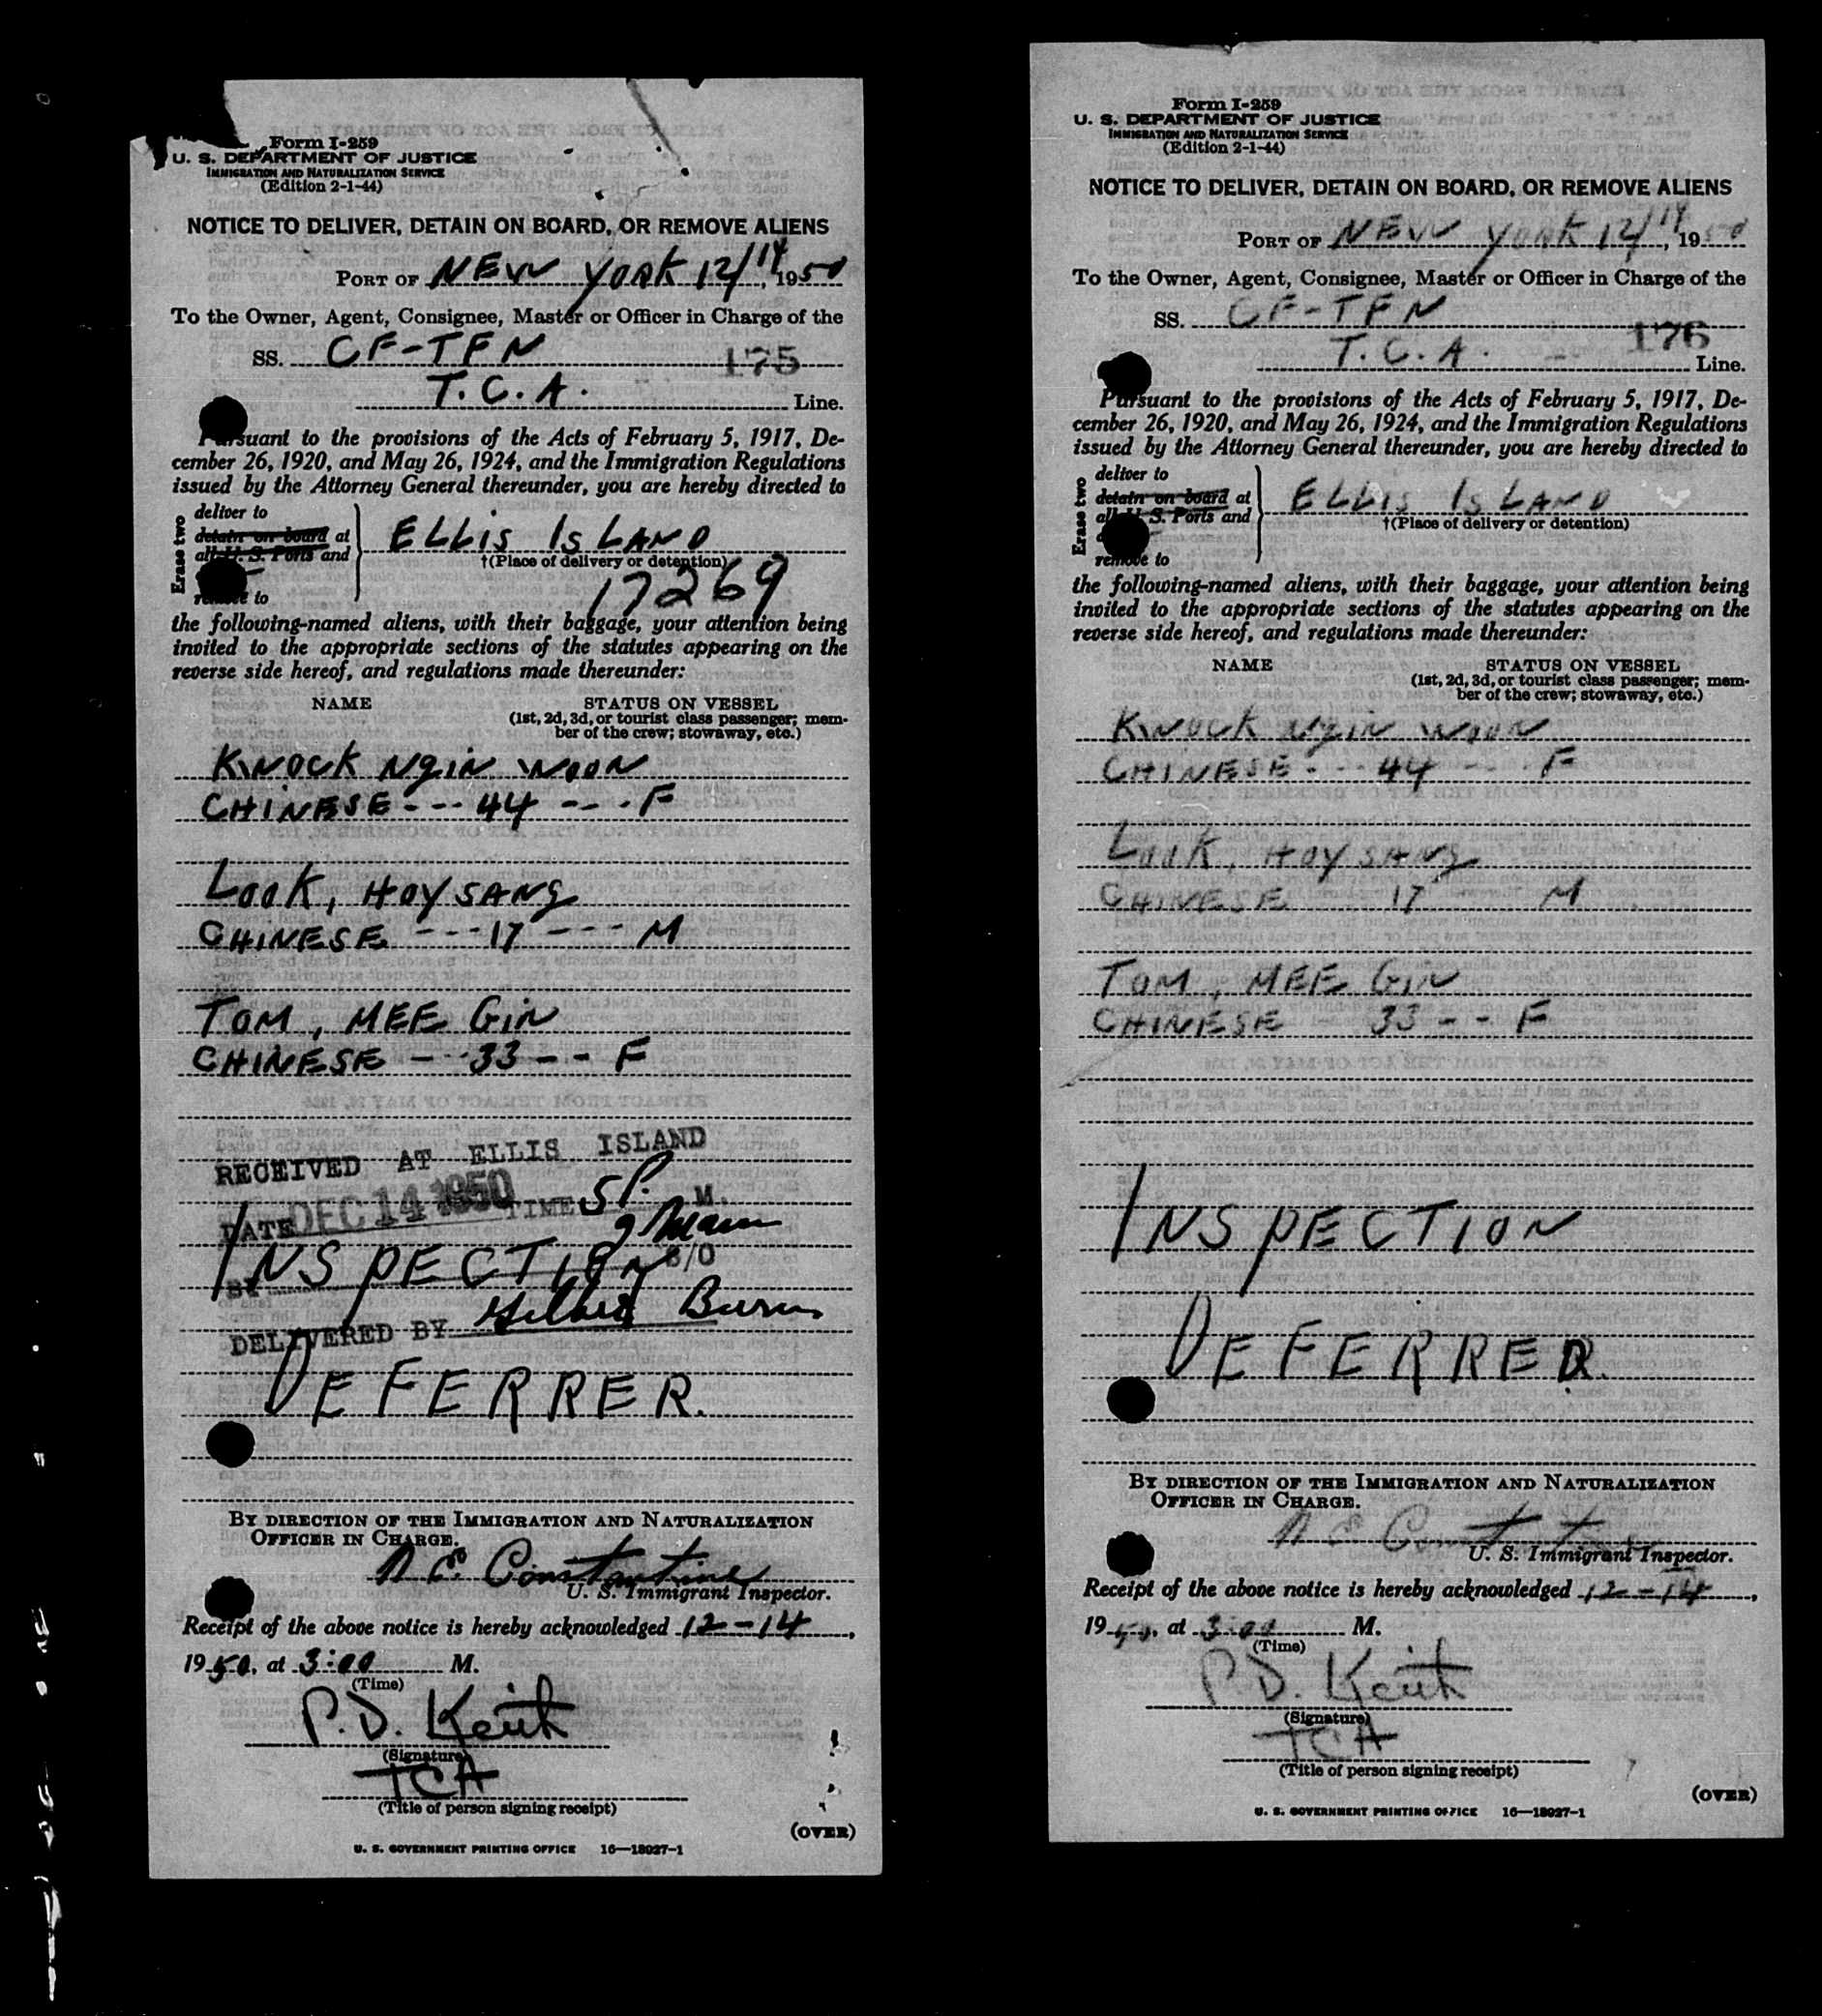 Form I-259
U. S. DEPARTMENT OF JUSTICE
IMMIGRATION AND NATURALIZATION SERVICE
(Edition 2-1-44)
NOTICE TO DELIVER, DETAIN ON BOARD, OR REMOVE ALIENS
PORT OF NEW YORK 12/14, 1950
To the Owner, Agent, Consignee, Master or Officer in Charge of the
SS. CF-TFN 175
T.C.A. Line.
Pursuant to the provisions of the Acts of February 5, 1917, De-
cember 26, 1920, and May 26, 1924, and the Immigration Regulations
issued by the Attorney General thereunder, you are hereby directed to
Erase two
deliver to
detain on board at
all U. S. Ports and
remove to
ELLIS ISLAND
†(Place of delivery or detention)
17269
the following-named aliens, with their baggage, your attention being
invited to the appropriate sections of the statutes appearing on the
reverse side hereof, and regulations made thereunder:
NAME STATUS ON VESSEL
(1st, 2d, 3d, or tourist class passenger; mem-
ber of the crew; stowaway, etc.)
KWOCK NgIN WOON
CHINESE --- 44 --- F
LOOK, HOY SANg
CHINESE --- 17 --- M
TOM, MEE GIN
CHINESE --- 33 -- F
RECEIVED AT ELLIS ISLAND
DATE DEC 14 1950 TIME 5 P. M.
INSPECTION
DELIVERED BY Burns
DEFERRER.
BY DIRECTION OF THE IMMIGRATION AND NATURALIZATION
OFFICER IN CHARGE.
Constantine
U. S. Immigrant Inspector.
Receipt of the above notice is hereby acknowledged 12-14,
1950, at 3:00 M.
(Time)
P.D. Keith
(Signature)
TCA
(Title of person signing receipt)
(OVER)
U. S. GOVERNMENT PRINTING OFFICE 16—18027-1
Form I-259
U. S. DEPARTMENT OF JUSTICE
IMMIGRATION AND NATURALIZATION SERVICE
(Edition 2-1-44)
NOTICE TO DELIVER, DETAIN ON BOARD, OR REMOVE ALIENS
PORT OF NEW YORK 12/14, 1950
To the Owner, Agent, Consignee, Master or Officer in Charge of the
SS. CF-TFN 176
T.C.A. Line.
Pursuant to the provisions of the Acts of February 5, 1917, De-
cember 26, 1920, and May 26, 1924, and the Immigration Regulations
issued by the Attorney General thereunder, you are hereby directed to
Erase two
deliver to
detain on board at
all U. S. Ports and
remove to
ELLIS ISLAND
†(Place of delivery or detention)
the following-named aliens, with their baggage, your attention being
invited to the appropriate sections of the statutes appearing on the
reverse side hereof, and regulations made thereunder:
NAME STATUS ON VESSEL
(1st, 2d, 3d, or tourist class passenger; mem-
ber of the crew; stowaway, etc.)
KWOCK NgIN WOON
CHINESE --- 44 --- F
LOOK, HOY SANg
CHINESE 17 M
TOM, MEE GIN
CHINESE 33 -- F
INSPECTION
DEFERRED.
BY DIRECTION OF THE IMMIGRATION AND NATURALIZATION
OFFICER IN CHARGE.
Constantine
U. S. Immigrant Inspector.
Receipt of the above notice is hereby acknowledged 12-14,
1950, at 3:00 M.
(Time)
P.D. Keith
(Signature)
TCA
(Title of person signing receipt)
(OVER)
U. S. GOVERNMENT PRINTING OFFICE 16—18027-1